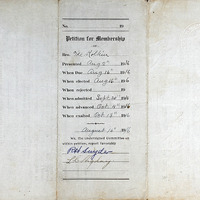 No. 19
Petition for Membership
of
Bro.
Presented Aug 2" 1916
When Due Aug 16" 1916
When elected Aug 16" 1916
When rejected 19
When admitted Sept 20" 1916
When advanced Oct 11" 1916
When exalted Oct 18" 1916
August 16" 1916
We, the undersigned Committee on
within petition, report favorably
Snyder